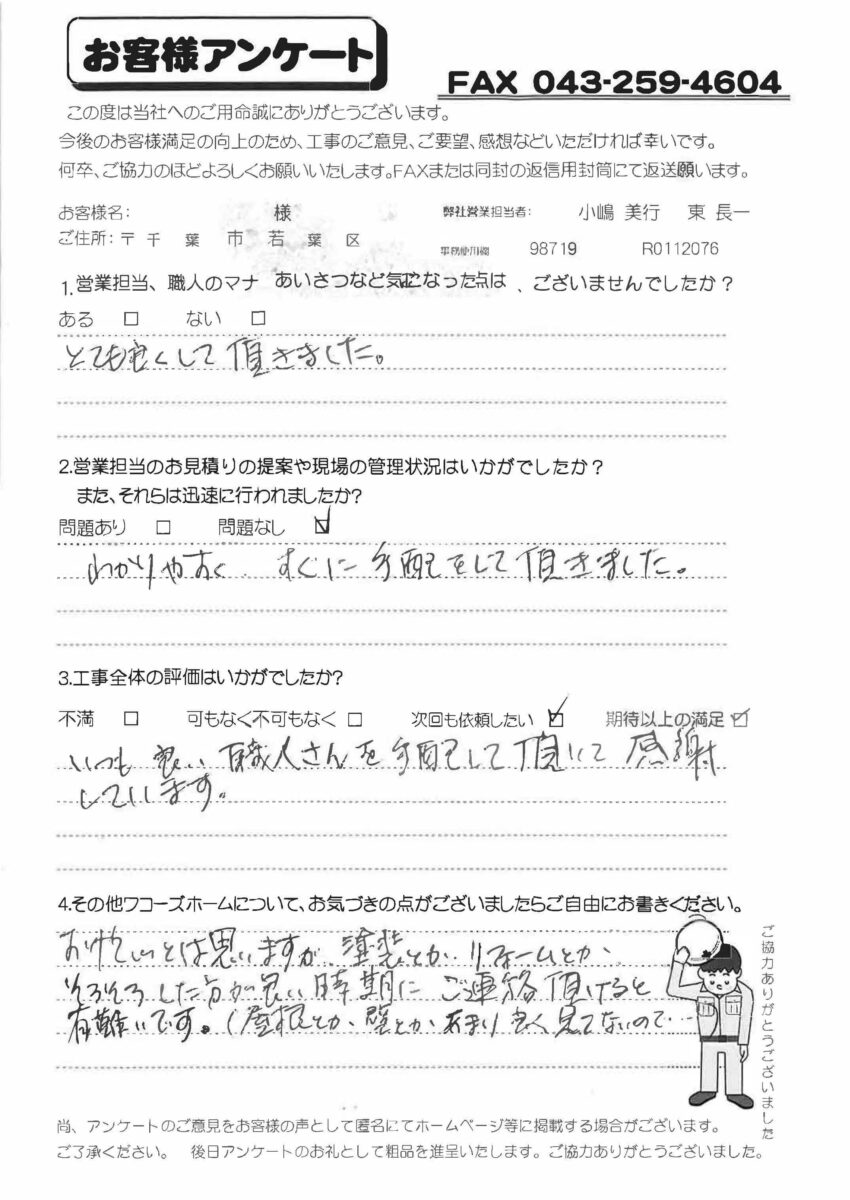 お客様アンケート
FAX 043-259-4604
この度は当社へのご用命誠にありがとうございます。
今後のお客様満足の向上のため、工事のご意見、ご要望、感想などいただければ幸いです。
何卒、ご協力のほどよろしくお願いいたします。FAXまたは同封の返信用封筒にて返送願います。
お客様名: 様 弊社営業担当者: 小嶋 美行 東 長一
ご住所:〒 千葉市若葉区 事務使用欄 98719 R0112076
1.営業担当、職人のマナ あいさつなど気になった点は、ございませんでしたか?
ある □ ない □
とても良くして頂きました。
2.営業担当のお見積りの提案や現場の管理状況はいかがでしたか?
また、それらは迅速に行われましたか?
問題あり □ 問題なし ☑
わかりやすく、すぐに手配をして頂きました。
3.工事全体の評価はいかがでしたか?
不満 □ 可もなく不可もなく □ 次回も依頼したい ☑ 期待以上の満足 ☑
いつも良い職人さんを手配して頂いて感謝
しています。
4.その他ワコーズホームについて、お気づきの点がございましたらご自由にお書きください。
とは思いますが、塗装とか、リフォームとか、
そろそろした方が良い時期にご連絡頂けると
有難いです。(屋根とか、壁とか、あまり良く見てないので
ご協力ありがとうございました
尚、アンケートのご意見をお客様の声として匿名にてホームページ等に掲載する場合がございます。
ご了承ください。 後日アンケートのお礼として粗品を進呈いたします。ご協力ありがとうございました。